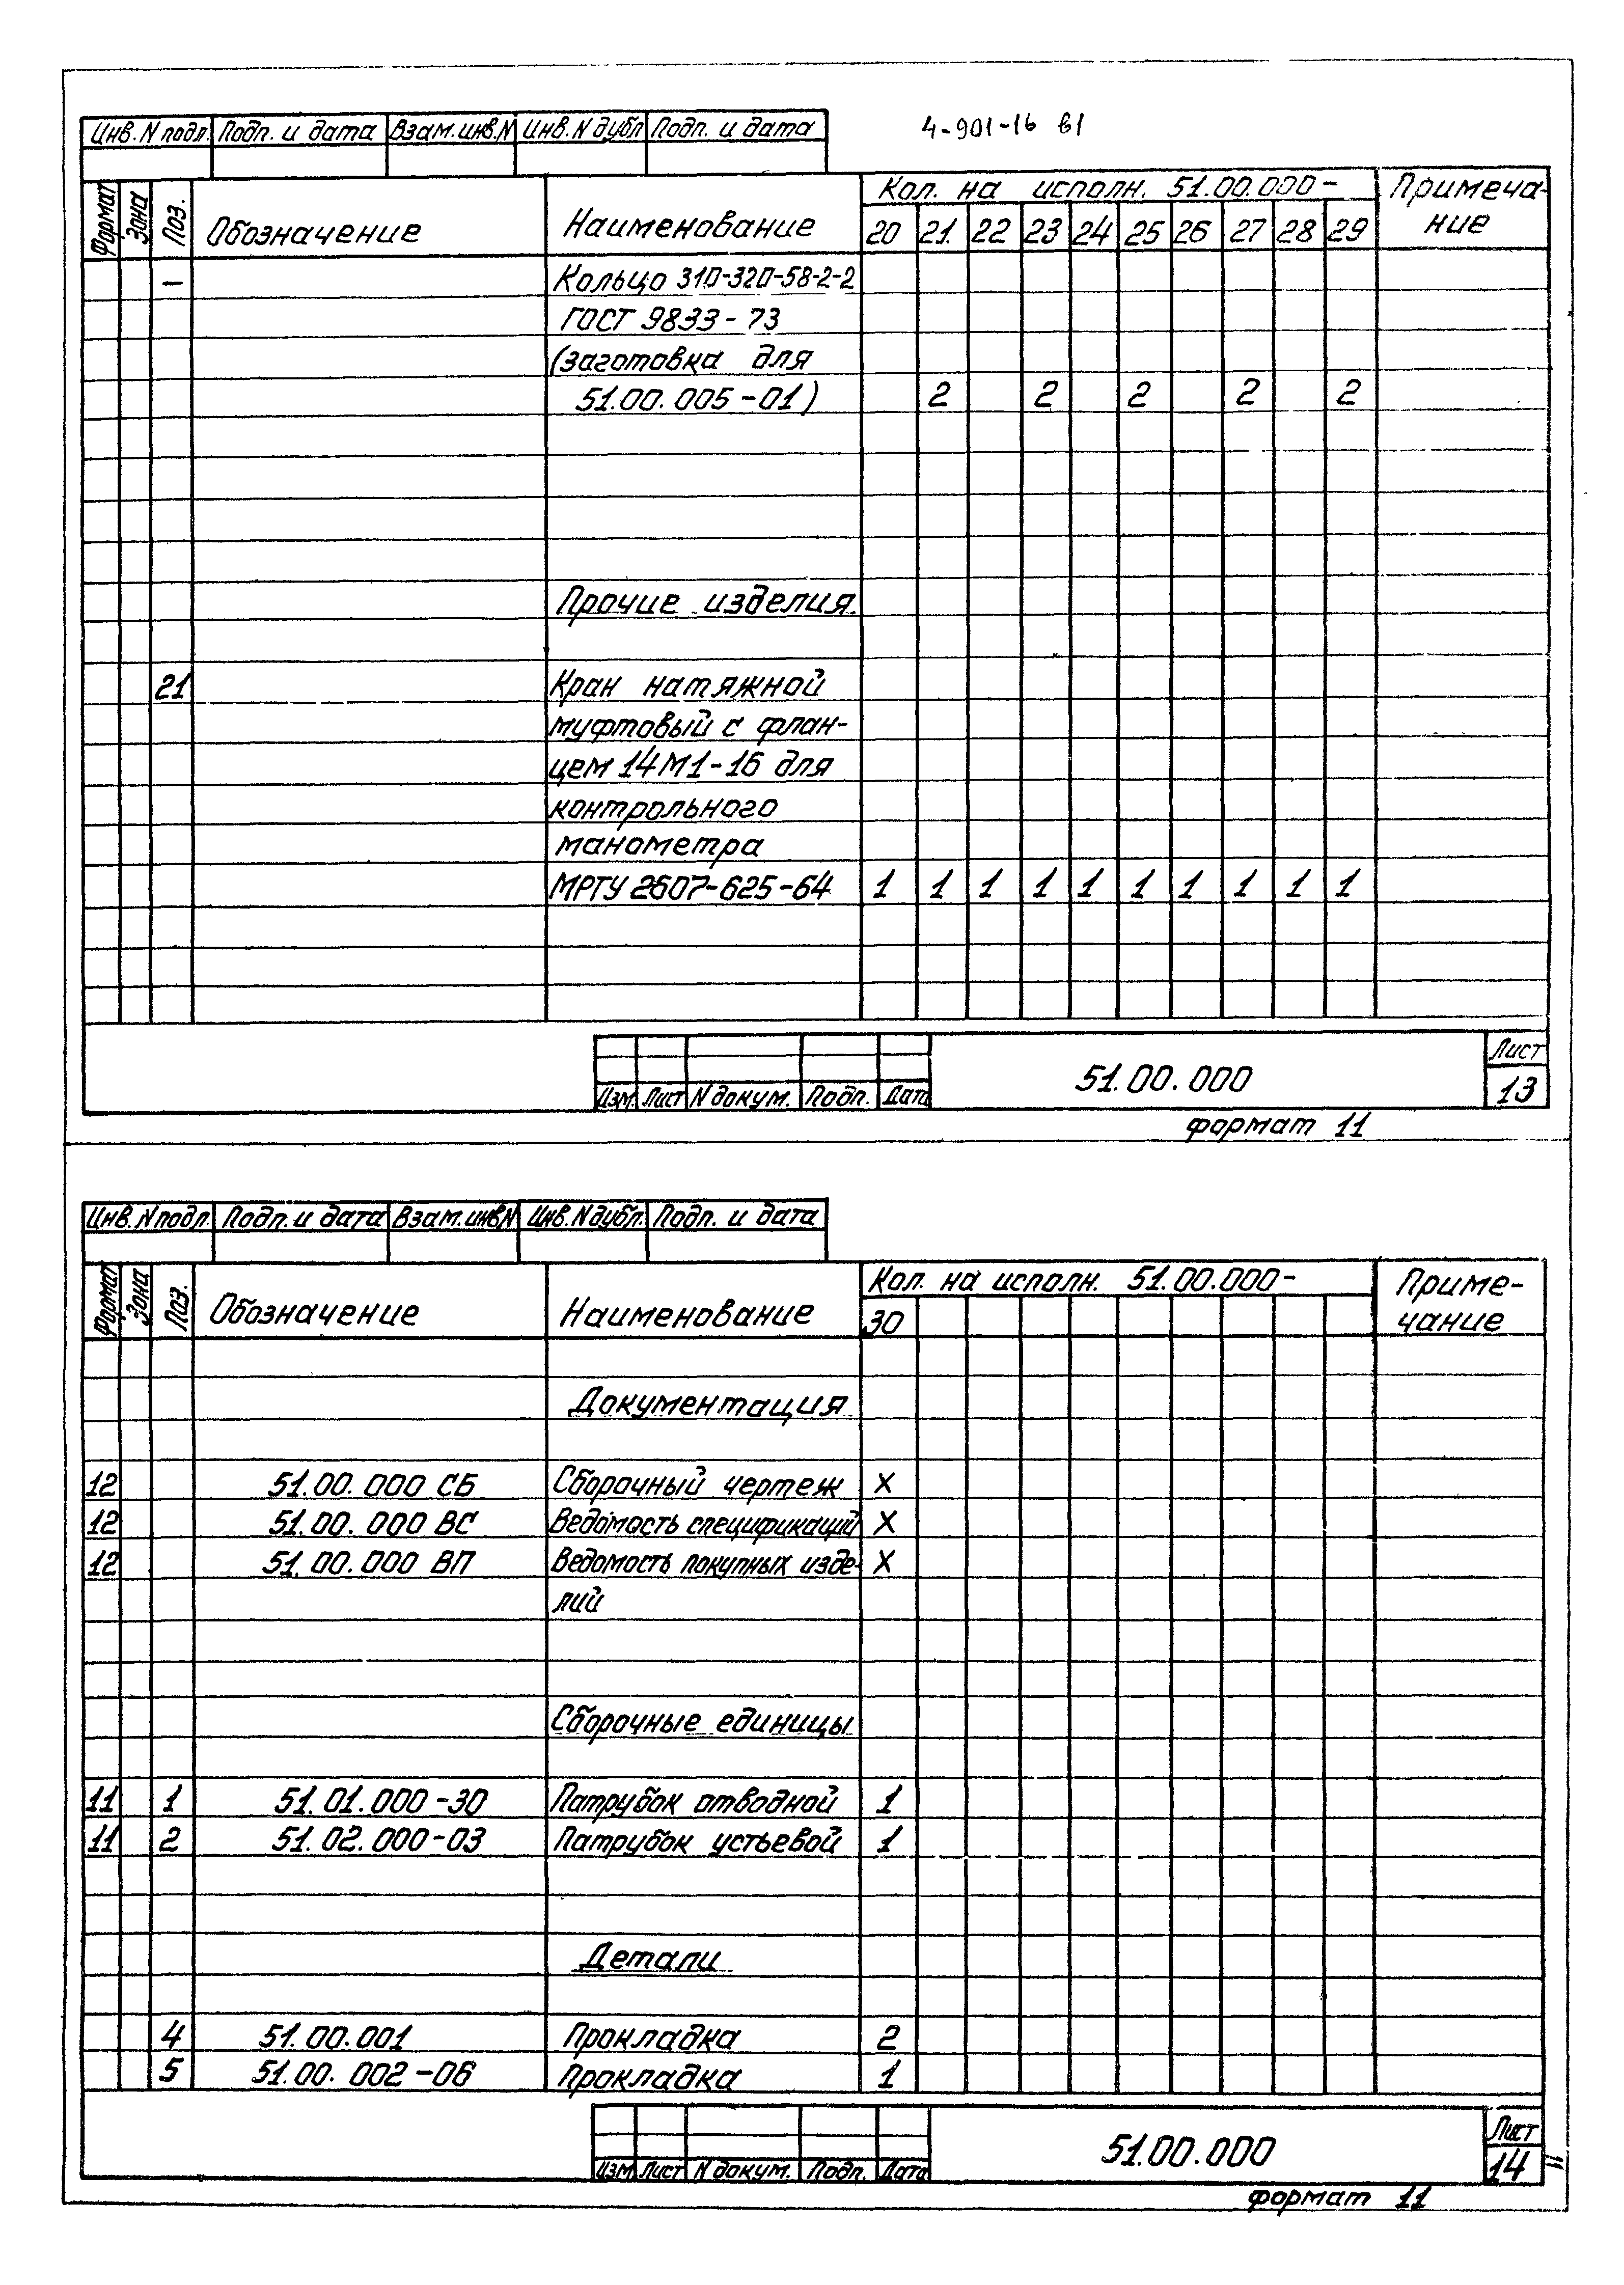 4-901-16 в1
Инв. N подл. Подп. и дата Взам. инв. N Инв. N дубл Подп. и дата
Формат Зона Поз. Обозначение Наименование Кол. на исполн. 51.00.000- Примеча-
20 21 22 23 24 25 26 27 28 29 ние
— Кольцо 310-320-58-2-2
ГОСТ 9833-73
(заготовка для
51.00.005-01) 2 2 2 2 2
Прочие изделия
21 Кран натяжной
муфтовый с флан-
цем 14М1-16 для
контрольного
манометра
МРТУ 2607-625-64 1 1 1 1 1 1 1 1 1 1
Изм. Лист N докум. Подп. Дата 51.00.000 Лист
13
формат 11
Инв. N подл. Подп. и дата Взам. инв N Инв. N дубл. Подп. и дата
Формат Зона Поз. Обозначение Наименование Кол. на исполн. 51.00.000- Приме-
30 чание
Документация
12 51.00.000 СБ Сборочный чертеж X
12 51.00.000 ВС Ведомость спецификаций X
12 51.00.000 ВП Ведомость покупных изде- X
лий
Сборочные единицы
11 1 51.01.000-30 Патрубок отводной 1
11 2 51.02.000-03 Патрубок устьевой 1
Детали
4 51.00.001 Прокладка 2
5 51.00.002-06 Прокладка 1
Изм Лист N докум. Подп. Дата 51.00.000 Лист
14
формат 11